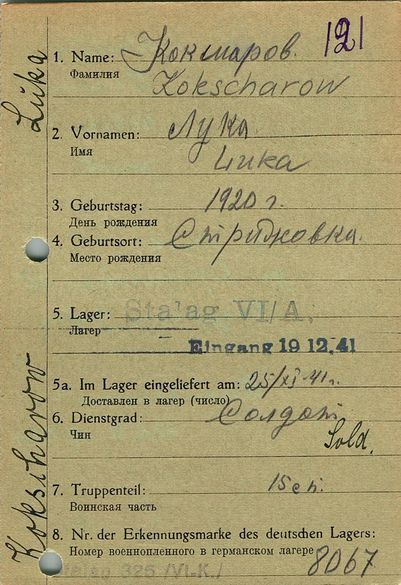 121
1. Name: Кокшаров.
Фамилия
Kokscharow
2. Vornamen: Лука
Имя
Luka
3. Geburtstag: 1920 г.
День рождения
4. Geburtsort: Стрижовка.
Место рождения
5. Lager: Stalag VI/A,
Лагер
Eingang 19 12. 41
5a. Im Lager eingeliefert am: 25/XI-41 г.
Доставлен в лагер (число)
6. Dienstgrad: Солдат
Чин
Sold.
7. Truppenteil:
Воинская часть
8. Nr. der Erkennungsmarke des deutschen Lagers:
Номер военнопленного в германском лагере 8067
Stalag 326 /VI-K./
Kokscharow Luka